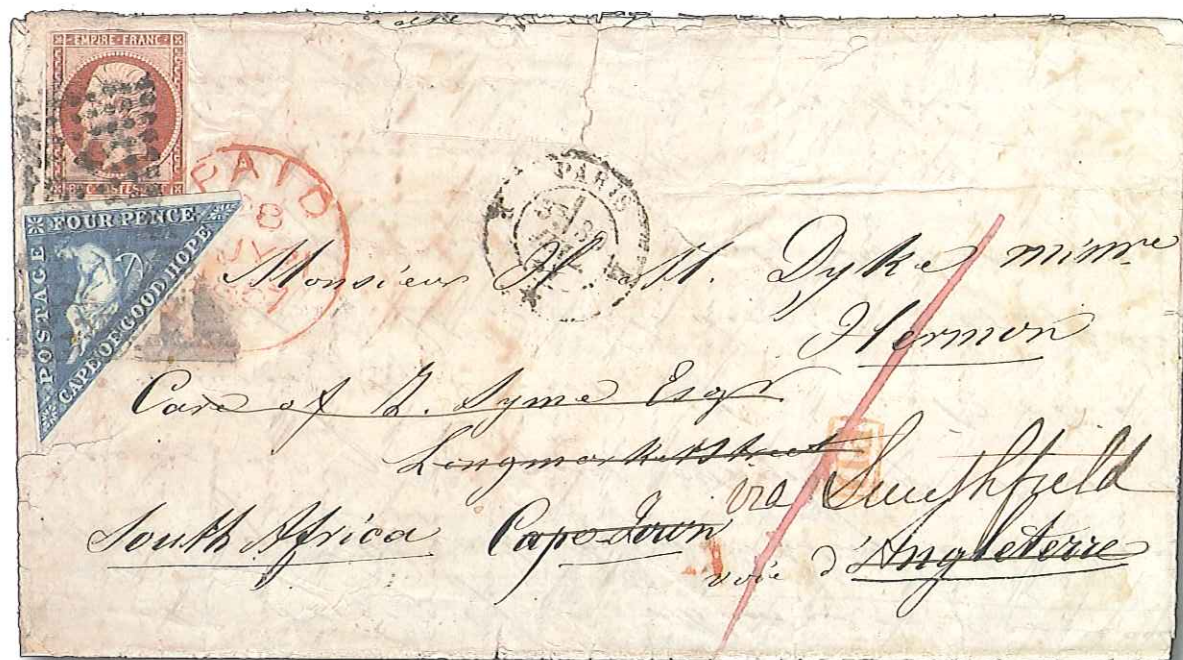 EMPIRE · FRANC ·
FOUR PENCE
POSTAGE
CAPE OF GOOD HOPE
PAID
PARIS
Monsieur H. M. Dyke minre
Hermon
Care of Z. Syme Esqr
Longmarket Street
via Smithfield
South Africa Cape Town
voie d'Angleterre